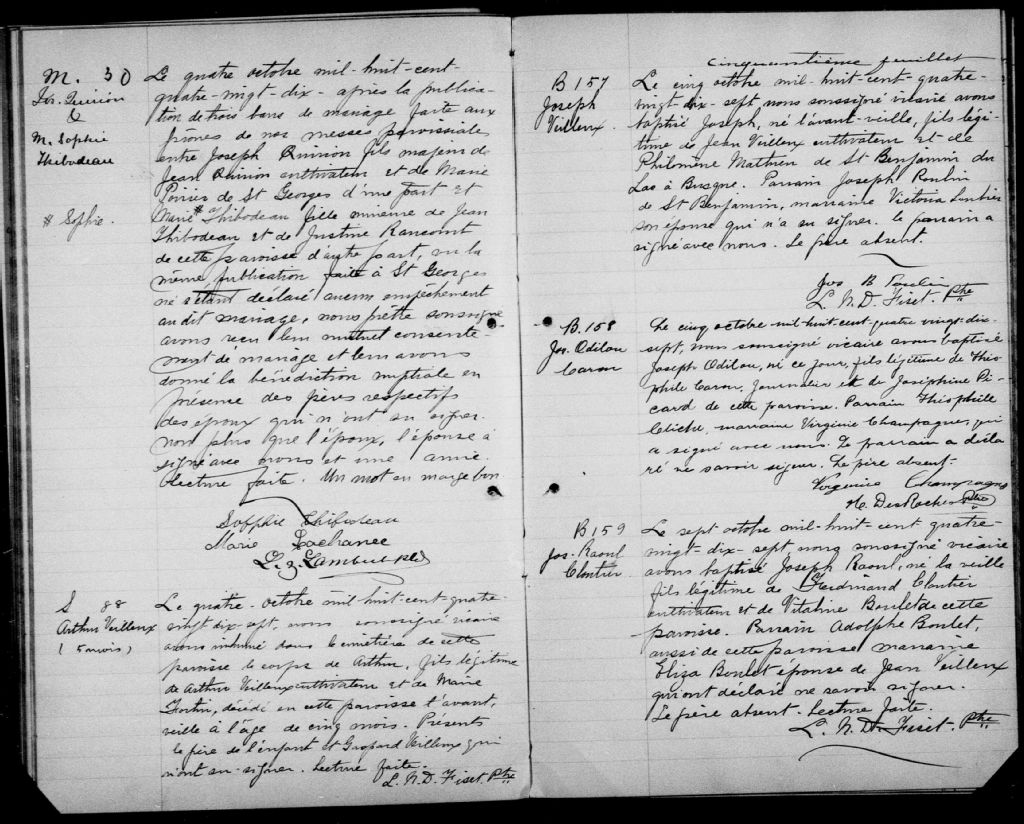 M. 30
Jos. Quirion
&
M. Sophie
Thibodeau
# Sophie.
Le quatre octobre mil-huit-cent-
quatre-vingt-dix- après la publica-
tion de trois bans de mariage faite aux
prônes de nos messes paroissiales
entre Joseph Quirion fils majeur de
Jean Quirion cultivateur et de Marie
Poirier de St Georges d'une part et
Marie # Thibodeau fille mineure de Jean
Thibodeau et de Justine Rancourt
de cette paroisse d'autre part, vu la
même publication faite à St Georges
ne s'étant déclaré aucun empêchement
au dit mariage, nous prêtre soussigné
avons reçu leur mutuel consente-
ment de mariage et leur avons
donné la bénédiction nuptiale en
présence des pères respectifs
des époux qui n'ont su signer
non plus que l'époux, l'épouse a
signé avec nous et une amie.
Lecture faite. Un mot en marge bon
Sopphie Thibodeau
Marie Lachance
L. Z. Lambert Ptre
S 88
Arthur Veilleux
( 5 mois )
Le quatre octobre mil-huit-cent-quatre-
vingt dix-sept, nous soussigné vicaire
avons inhumé dans le cimetière de cette
paroisse le corps de Arthur, fils légitime
de Arthur Veilleux cultivateur et de Marie
Fortin, décédé en cette paroisse l'avant,
veille à l'âge de cinq mois. Présents
le père de l'enfant et Gaspard Veilleux qui
n'ont su signer. Lecture faite.
L. N. D. Fiset. Ptre
cinquantième feuillet
B 157
Joseph
Veilleux.
Le cinq octobre mil-huit-cent-quatre-
vingt-dix-sept nous soussigné vicaire avons
baptisé Joseph, né l'avant-veille, fils légi-
time de Jean Veilleux cultivateur et de
Philomène Mathieu de St Benjamin du
Lac à Busque. Parrain Joseph Poulin
de St Benjamin, marraine Victoria
son épouse qui n'a su signer. le parrain a
signé avec nous. Le père absent.
Jos B Poulin
L. N. D. Fiset. Ptre
B. 158
Jos. Odilou
Caron
Le cinq octobre mil-huit-cent-quatre vingt-dix-
sept, nous soussigné vicaire avons baptisé
Joseph Odilou, né ce jour, fils légitime de Théo-
phile Caron, journalier et de Joséphine Pi-
card de cette paroisse. Parrain Théophile
Cliche, marraine Virginie Champagne, qui
a signé avec nous. Le parrain a décla-
ré ne savoir signer. Le père absent.
Virginie Champagne
H. DesRochers Ptre
B 159
Jos. Raoul
Cloutier
Le sept octobre mil-huit-cent quatre-
vingt-dix-sept, nous soussigné vicaire
avons baptisé Joseph Raoul, né la veille
fils légitime de Ferdinand Cloutier
cultivateur et de Vitaline Boulet de cette
paroisse. Parrain Adolphe Boulet,
aussi de cette paroisse marraine
Eliza Boulet épouse de Jean Veilleux
qui ont déclaré ne savoir signer.
Le père absent. Lecture faite.
L. N. D. Fiset. Ptre